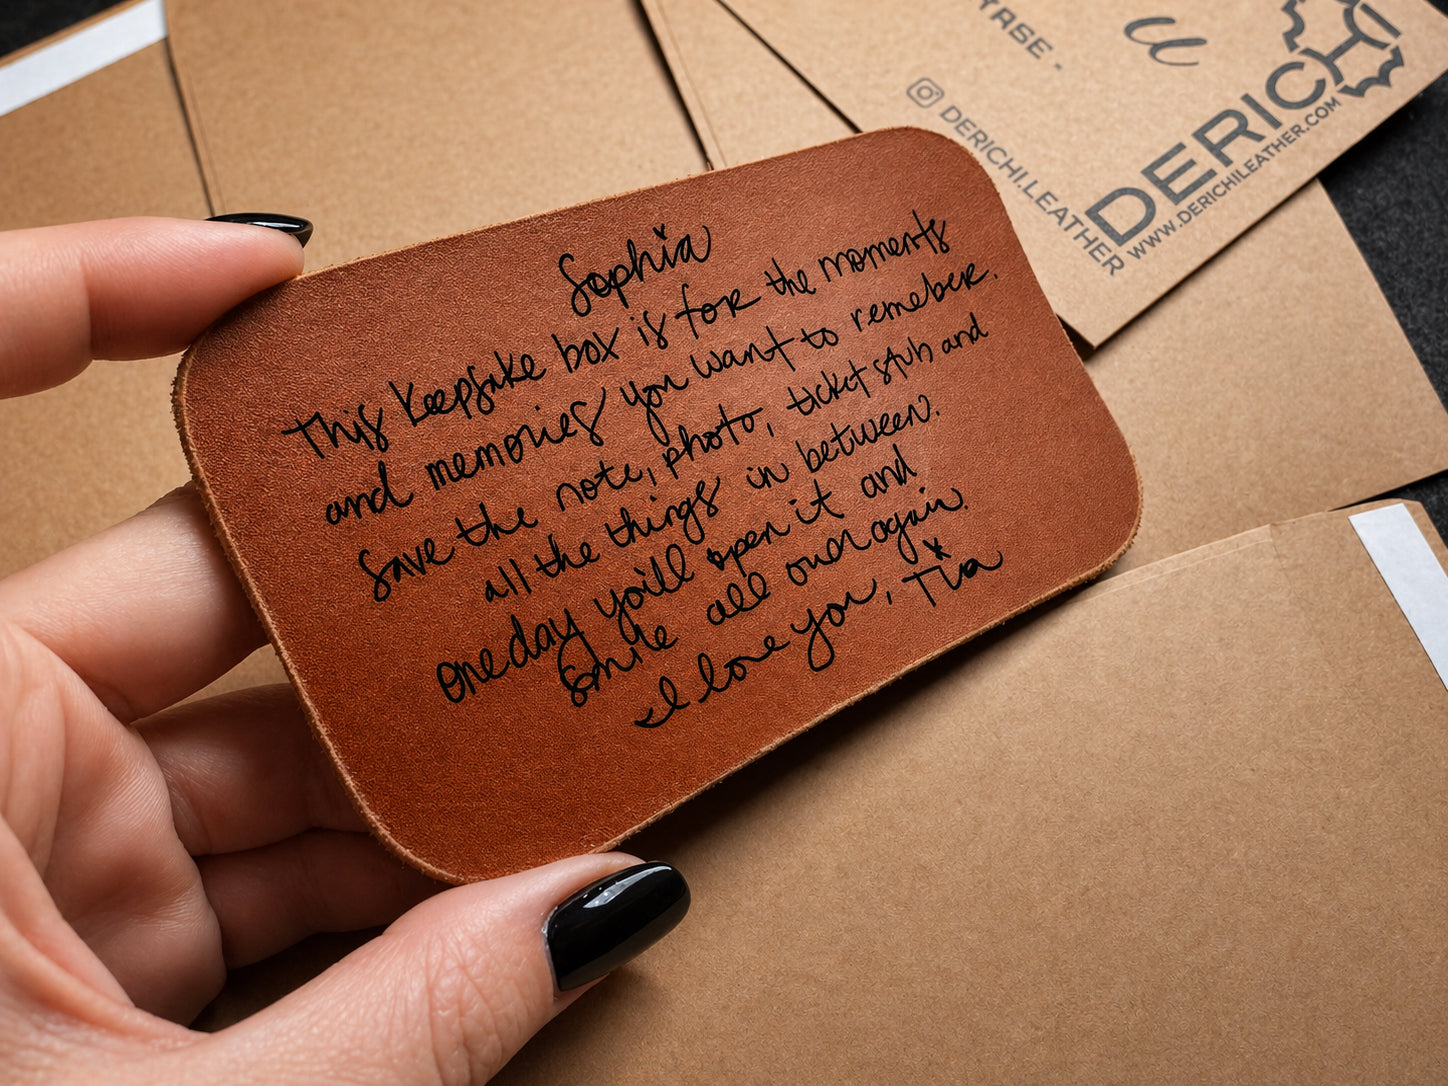 Sophia
This keepsake box is for the moments
and memories you want to remeber.
save the note, photo, ticket stub and
all the things in between.
one day you'll open it and
smile all over again.
I love you, Tia
DERICHI.LEATHER
DERICH
WWW.DERICHILEATHER.COM